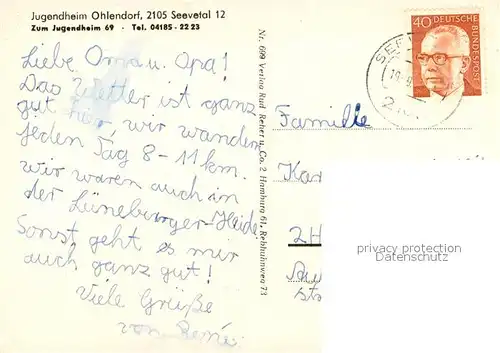 Jugendheim Ohlendorf, 2105 Seevetal 12
Zum Jugendheim 69 · Tel. 04185 - 22 23
Liebe Oma u. Opa!
Das Wetter ist ganz
gut hier, wir wandern
jeden Tag 8-11 km.
Wir waren auch in
der Lüneburger-Heide
Sonst geht es mir
auch ganz gut!
Viele Grüße
von René
Nr. 699 Verlag Rud. Reher u. Co. 2 Hamburg 61, Rebhuhnweg 73
40 DEUTSCHE
BUNDESPOST
SEE
Familie
Kar
2H
privacy protection
Datenschutz